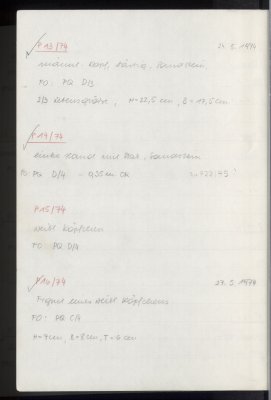 P 13/74 24. 5. 1974
männl. Kopf, bärtig, Sandstein,
FO: PQ D/3
2/3 Lebensgröße, H=22,5 cm, B=17,5 cm
P 14/74
linke Hand mit Rest, Sandstein
FO PQ D/4 - 0,35 m OK
P 15/74
weibl Köpfchen
FO PQ D/4
P 16/74 27. 5. 1974
Figur eines weibl Köpfchens
FO: PQ C/4
H=7cm, B=3cm, T=6 cm